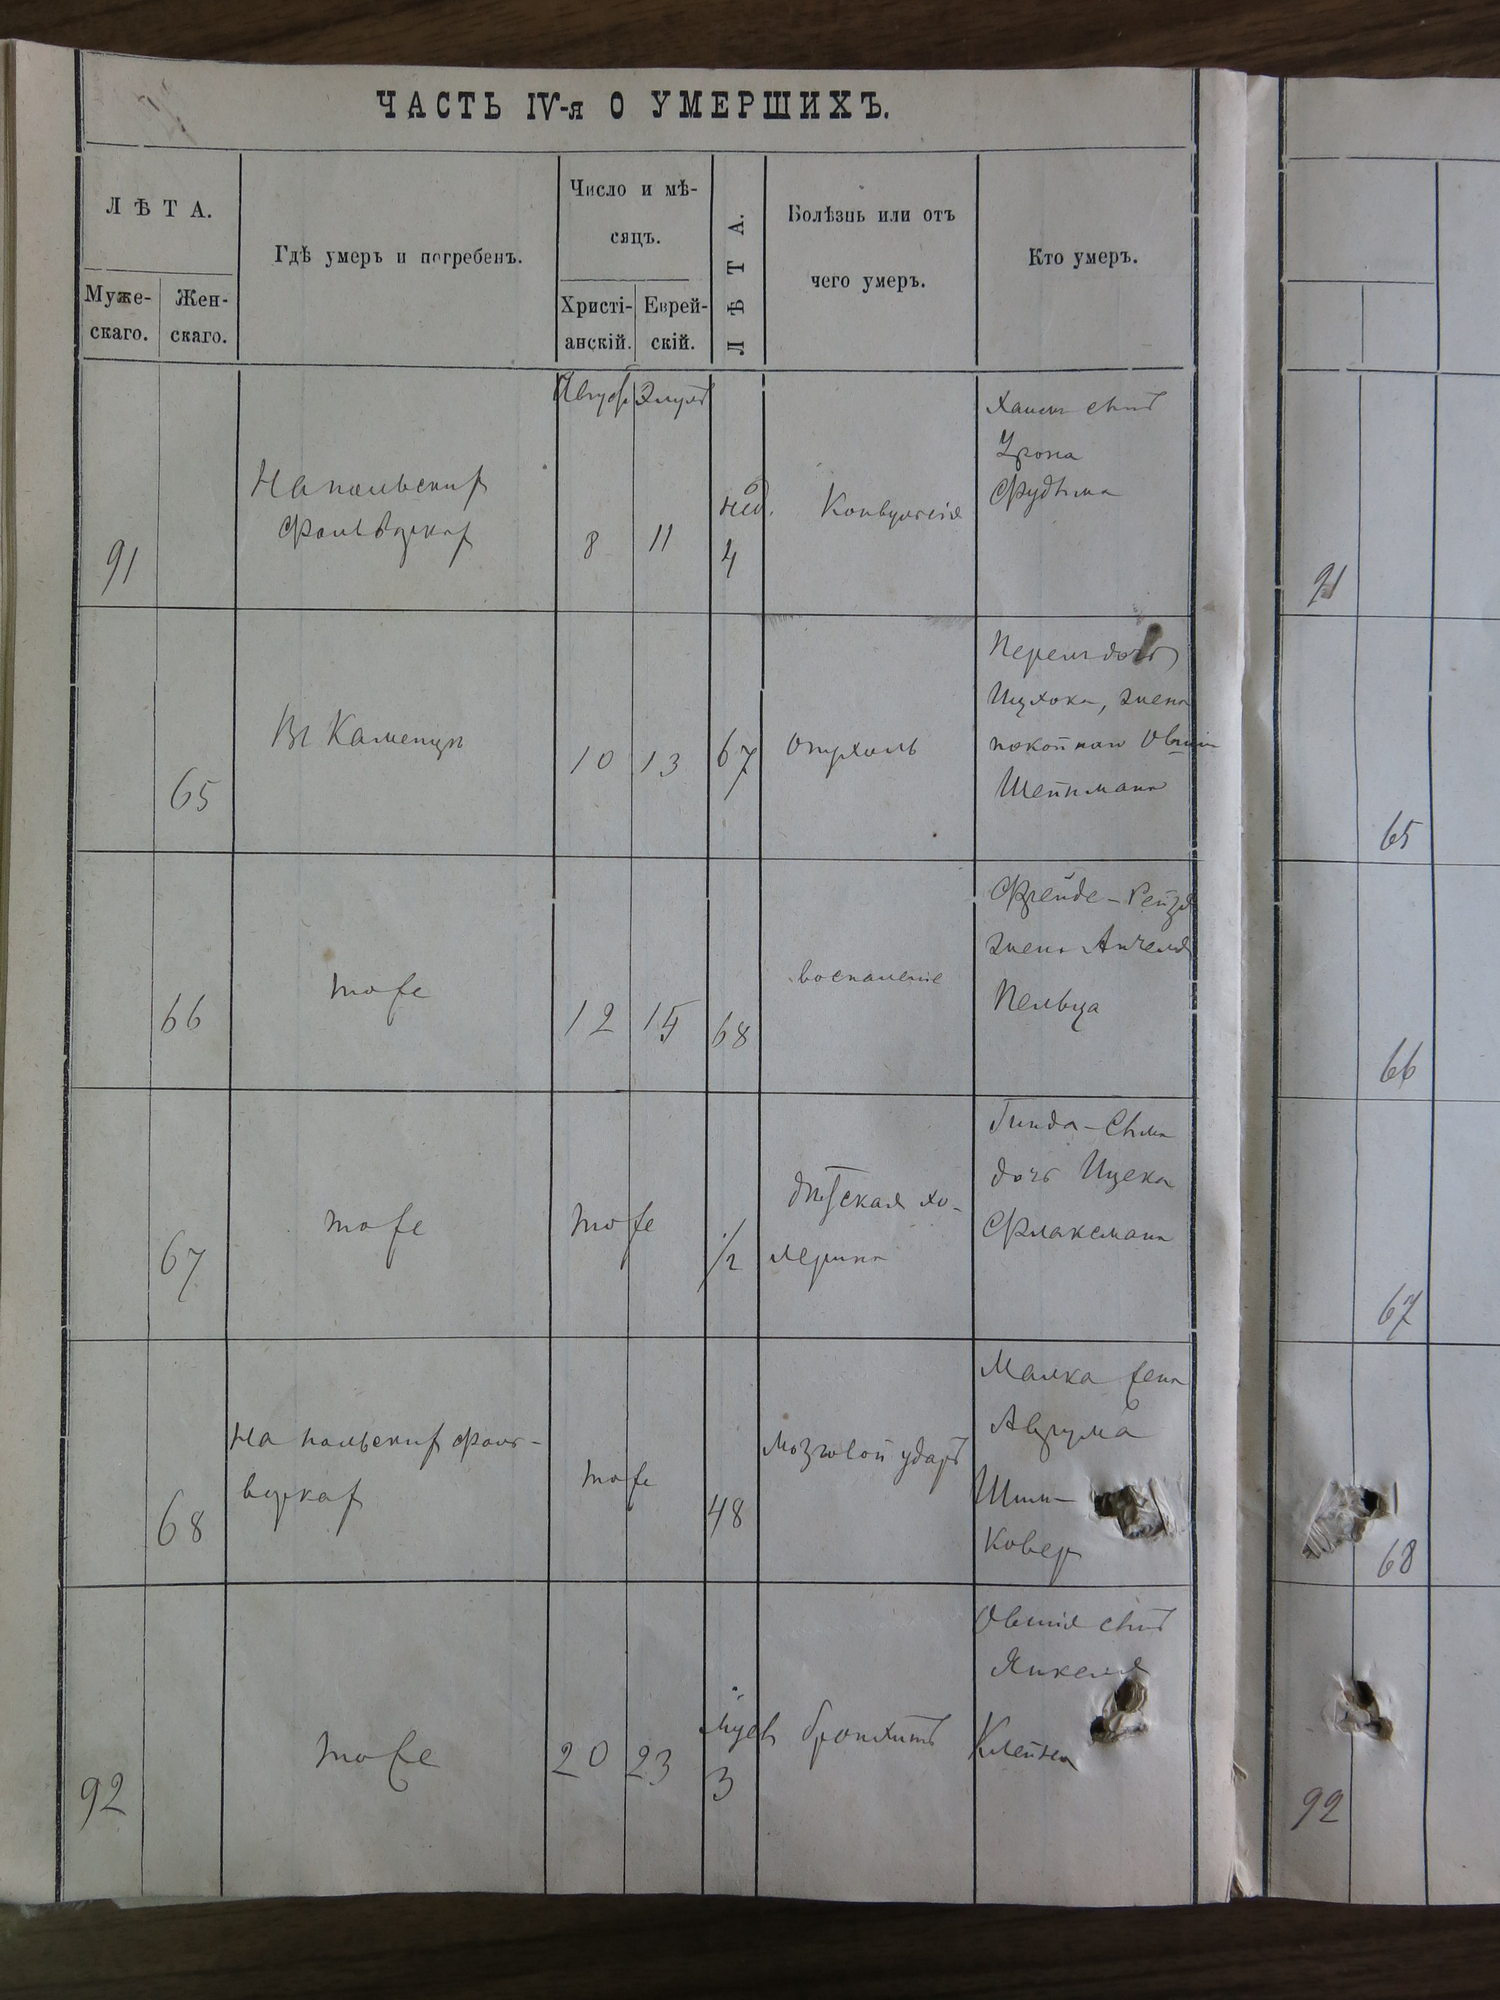 ЧАСТЬ IV-я О УМЕРШИХЪ.
ЛѢТА.
Муже-
скаго.
Жен-
скаго.
Гдѣ умеръ и погребенъ.
Число и мѣ-
сяцъ.
Христі-
анскій.
Еврей-
скій.
ЛѢТА.
Болѣзнь или отъ
чего умеръ.
Кто умеръ.
Август Элулъ
91
На польских
фольварках
8
11
нед.
4
Конвульсия
Хаим сынъ
Фудыма
91
65
Въ Каменцѣ
10
13
67
опухоль
Перель дочь
Ицхока, жена
покойнаго Овшия
Шейнмана
65
66
тоже
12
15
68
воспаление
Фрейде-Рейзя
жена Анчеля
Пельца
66
67
тоже
тоже
1/2
дѣтская хо-
лерина
Гинда-Сыма
дочь Ицека
Флаксмана
67
68
На польских фоль-
варках
тоже
48
Мозговой ударъ
Малка жена
Аврума
Шин-
ковер
68
92
тоже
20
23
Мцев
3
бронхитъ
Овшия сынъ
Янкеля
Клейна
92